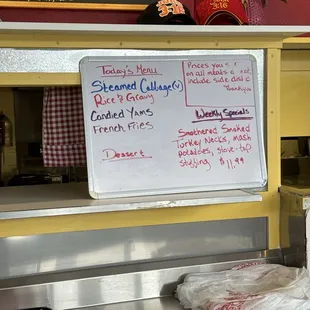 3:16
Today's Menu
Steamed Cabbage (V)
Rice & Gravy
Candied Yams
French Fries
Dessert
Prices you
on all meats
include side
Thank you
Weekly Specials
Smothered Smoked
Turkey Necks, Mash
potatoes, stove-top
stuffing $11.99